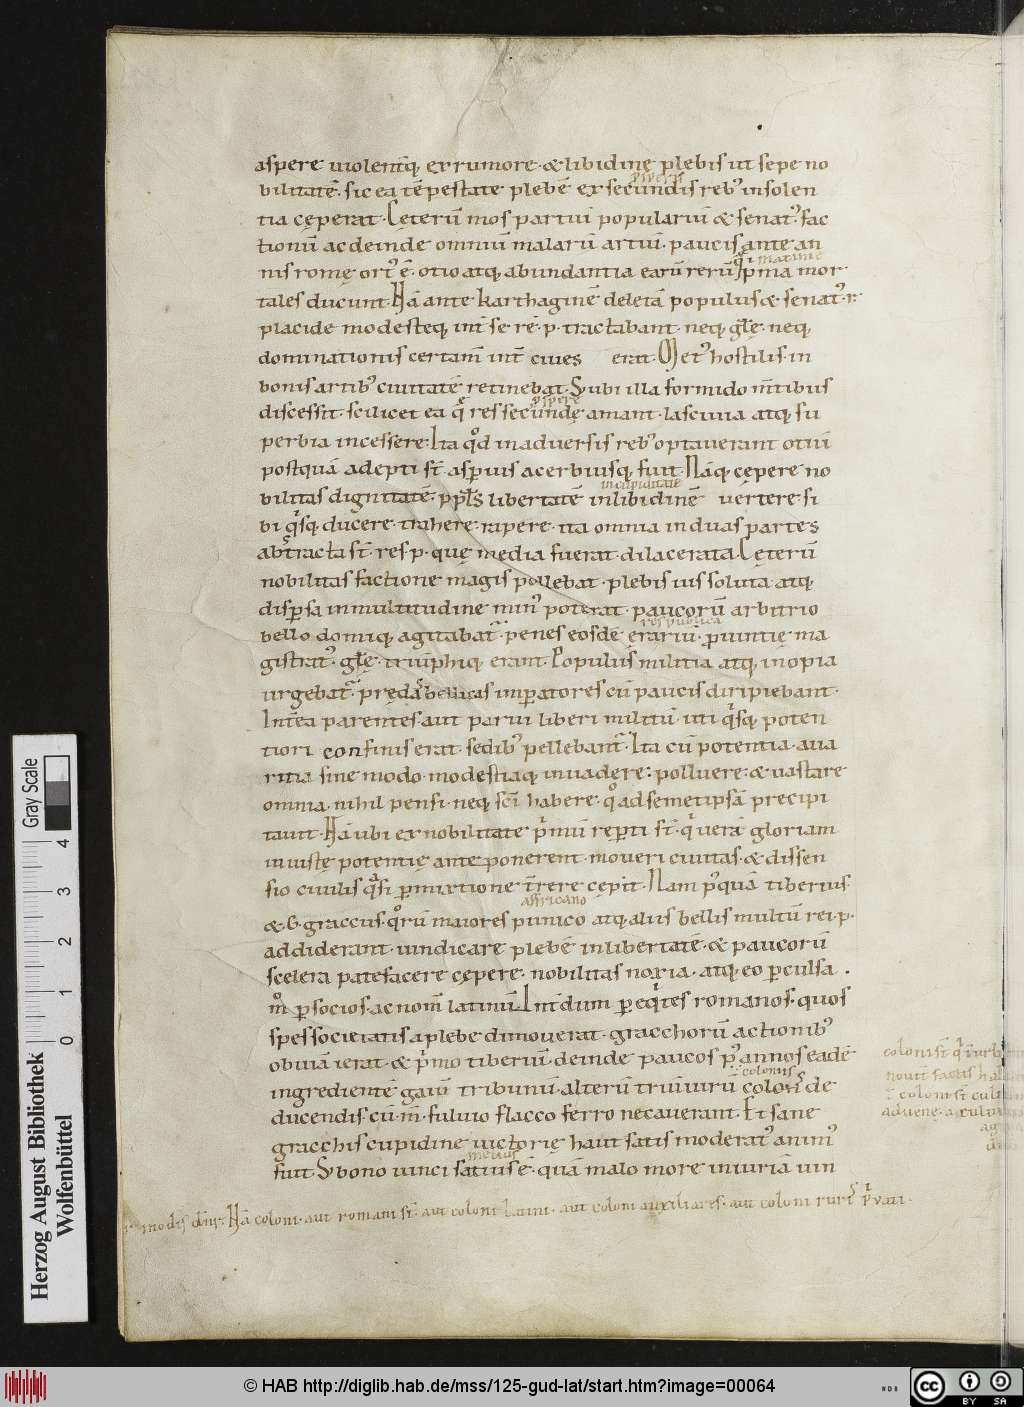 aspere uiolenterq; ex rumore · & libidine plebis ut sepe no
ꝓsperis
bilitatē · sic ea tēpestate plebē ex secundis reb; insolen
tia cęperat · Cęterū mos partiū populariū & senat; fac
tionū ac deinde omniū malarū artiū · paucis ante an
q̄ i maxime
nis romę ort; ē · otio atq; abundantia earū rerū ꝑma mor
tales ducunt · Nā ante karthaginē deletā populus & senat; r
placide modesteq; int̄ se rē · p · tractabant · neq; gl̄ę · neq;
dominationis certam̄ int̄ ciues erat · Met; hostilis in
bonis artib; ciuitatē retinebat · S; ubi illa formido m̄tibus
discessit · scilicet ea q̄ res secundę amant · lasciuia atq; su
ꝓsperę
perbia incessere · Ita qd̄ in aduersis reb; optauerant otiū
postquā adepti st̄ · asperius acerbiusq; fuit · Nāq; cępere no
in cupiditatē
bilitas dignitatē · ppl̄s libertatē in libidinē uertere · si
bi q̄sq; ducere · trahere · rapere · ita omnia in duas partes
abstracta st̄ · res · p · quę media fuerat · dilacerata · Cęterū
nobilitas factione magis pollebat · plebis uis soluta · atq;
dispersa in multitudine min; poterat · paucorū arbitrio
respublica
bello domiq; agitabat̄ · penes eosdē erariū · ꝓuintię ma
gistrat; · gl̄ę · triūphiq; erant · Populus militia atq; inopia
urgebat̄ · prędas bellicas imperatores cū paucis diripiebant ·
Int̄ea parentes aut parui liberi militū · uti q̄sq; poten
tiori confinis erat · sedib; pellebant̄ · Ita cū potentia · aua
ritia sine modo · modestiaq; inuadere : polluere : & uastare
omnia · nihil pensi · neq; sc̄i habere · q̊ ad semetipsā precipi
tauit · Nā ubi ex nobilitate p̄mū reperti st̄ · q̄ uerā gloriam
iniustę potentię anteponerent · moueri ciuitas · & dissen
sio ciuilis q̄si permixtione t̄rere cępit · Nam p̄quā tiberius
affricano
& G · graccus · q̊rū maiores punico atq; aliis bellis multū rei · p ·
addiderant · uindicare plebē in libertatē · & paucorū
scelera patefacere cępere · nobilitas noxia · atq; eo perculsa .
m̊ per socios · ac nom̄ latinū · Int̄dum per eq̄tes romanos · quos
spes societatis a plebe dimouerat · gracchorū actionib;
obuiā ierat · & p̄mo tiberiū · deinde paucos p; annos eadē
ī colonus
ingredientē gaiū tribunū · alterū triūuirū coloniis de
ducendis cū · m̄ · fuluio flacco ferro necauerant · Et sane
gracchis cupidine uictorię haut satis moderat; anim;
melius
fuit · S; bono uinci satius ē · quā malo more iniuriā uin
modis dn̄r · Nā coloni · aut romani st̄ · aut coloni latini · aut coloni auxiliares · aut coloni ruris p̄uati ·
coloni st̄ q̄ ī urb
nouit satis
ī coloni st̄ cul
aduenę · a
© HAB http://diglib.hab.de/mss/125-gud-lat/start.htm?image=00064
Herzog August Bibliothek
Wolfenbüttel
0 1 2 3 4
Gray Scale
cc
BY SA